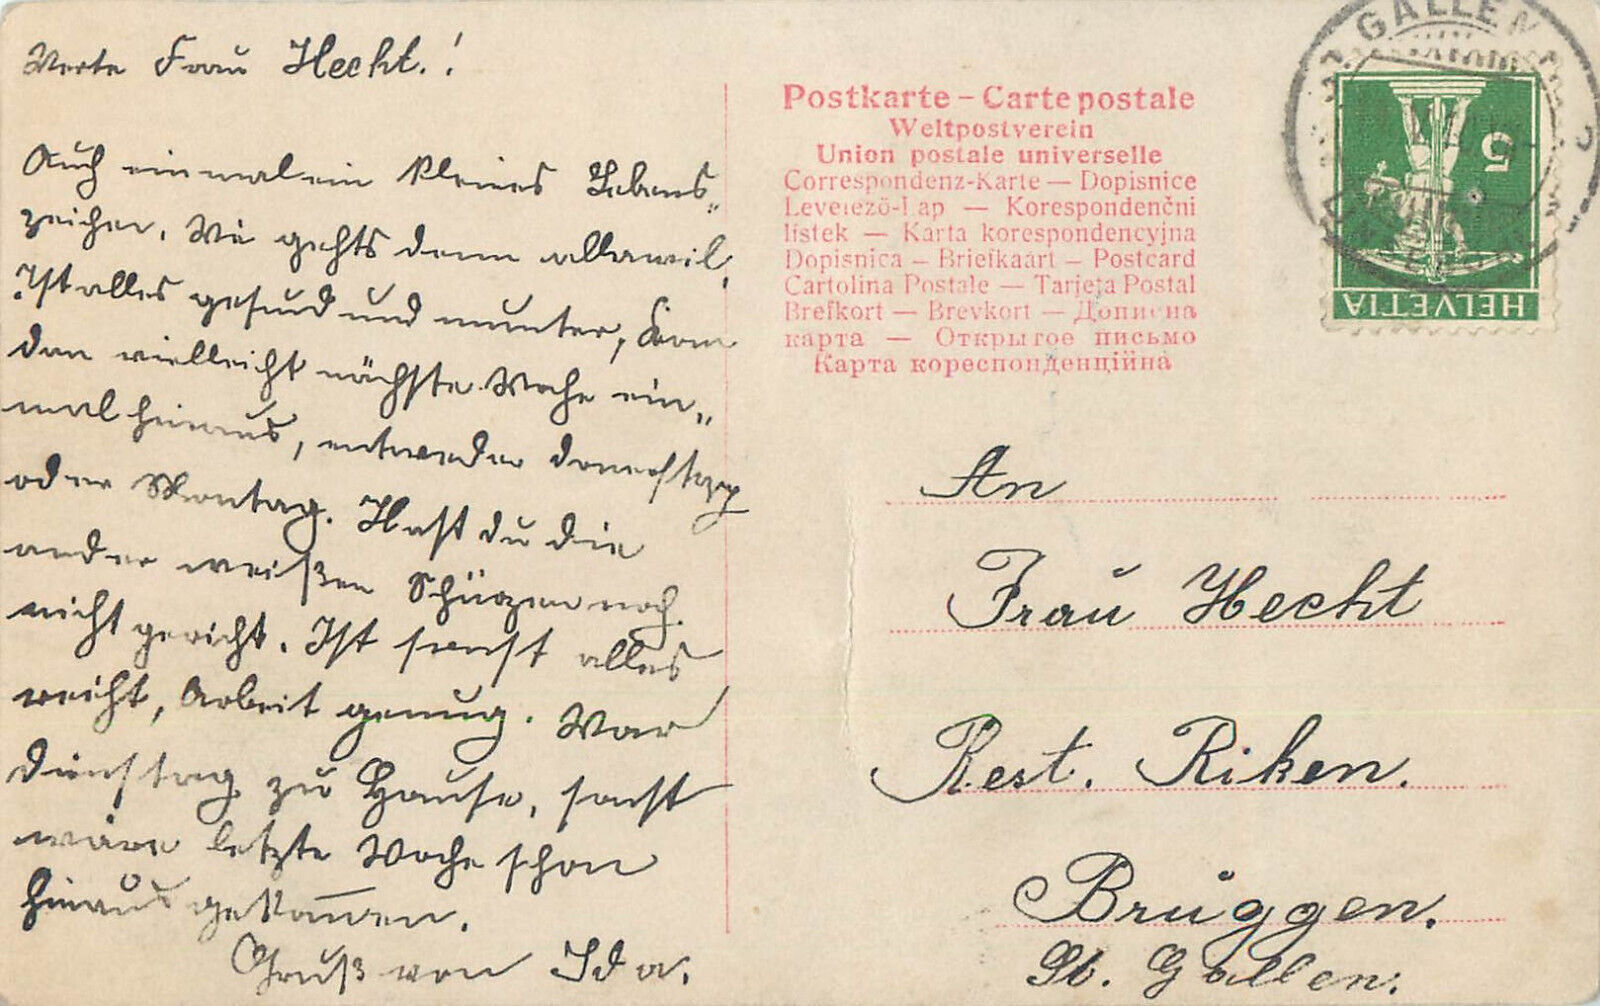 Werte Frau Hecht.!
Auch einmal ein kleines Lebens„
zeichen. Wie gehts denn allawil,
Ist alles gesund und munter, kom
dan vielleicht nächste Woche ein„
mal hinaus, entweder donerstag
oder Montag. Hast du die
ander weißen Schürzen noch
nicht gericht. Ist sonst alles
recht, Arbeit genug. War
Dienstag zu Hause, sonst
wäre letzte Woche schon
hinaus gekom̅en.
Gruß von Ida.
Postkarte – Carte postale
Weltpostverein
Union postale universelle
Correspondenz-Karte — Dopisnice
Levelező-Lap — Korespondenční
lístek — Karta korespondencyjna
Dopisnica — Briefkaart — Postcard
Cartolina Postale — Tarjeta Postal
Brefkort — Brevkort — Дописна
карта — Открытое письмо
Карта кореспонденційна
GALLEN
5
HELVETIA
An
Frau Hecht
Rest. Riken.
Brüggen.
St. Gallen.